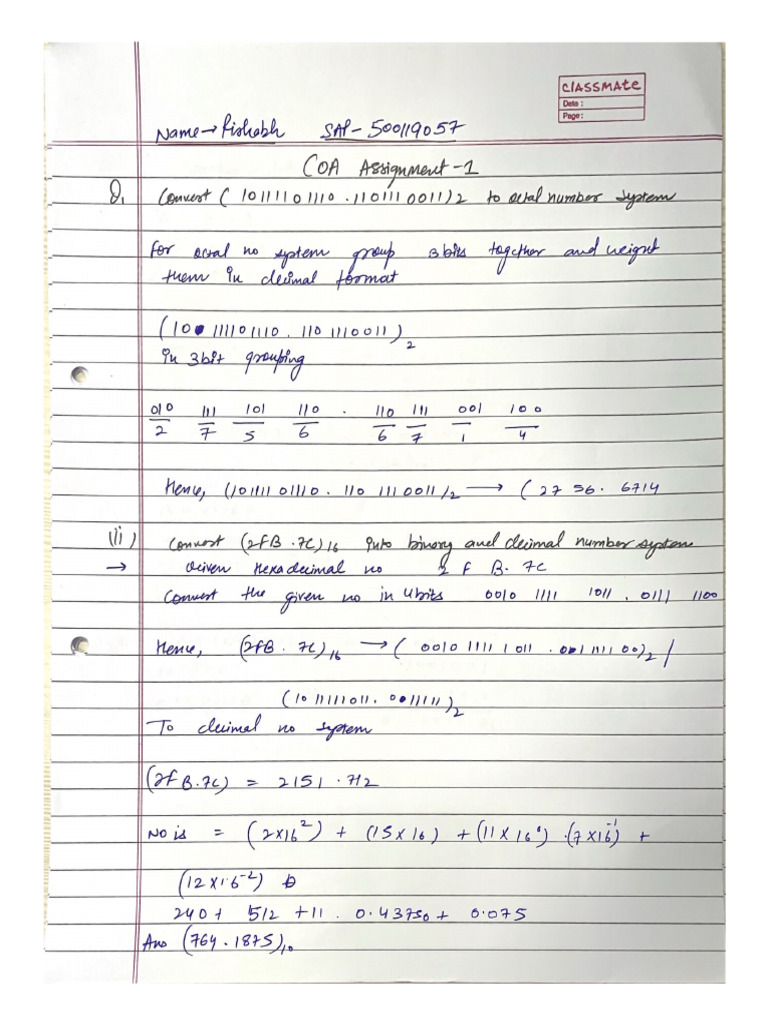 CLASSMATE
Date :
Page :
Name → Rishabh SAP - 500119057
COA Assignment - 1
Q. Convert ( 10111101110 . 1101110011 )2 to octal number system
for octal no system group 3 bits together and weight
them in decimal format
(10 111101110 . 110 1110011 )2
in 3 bit grouping
010 111 101 110 . 110 111 001 100
2 7 5 6 6 7 1 4
Hence, (10111101110 . 110 1110011)2 → ( 27 56 . 6714
(ii) Convert (2FB .7C)16 into binary and decimal number system
→ Given Hexadecimal no 2 F B. 7C
Convert the given no in 4 bits 0010 1111 1011 . 0111 1100
Hence, (2FB . 7C)16 → ( 0010 1111 1011 . 001111100)2 /
(1011111011. 0011111)2
To decimal no system
(2FB.7C) = 2151 .712
No is = (2x16²) + (15x16) + (11x16⁰) .(7x16⁻¹) +
(12x16⁻²)
240 + 512 + 11 . 0.43750 + 0.075
Ans (764 .1875)10